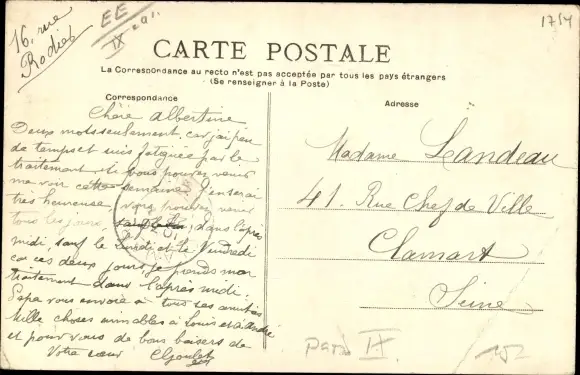 16, rue
Rodier
EE
IX
1754
CARTE POSTALE
La Correspondance au recto n'est pas acceptée par tous les pays étrangers
(Se renseigner à la Poste)
Correspondance
Adresse
Chère Albertine
Deux mots seulement, car j'ai peu
de temps et suis fatiguée par le
traitement si vous pouvez venir
me voir cette semaine j'en serai
très heureuse, vous pouvez venir
tous les jours, dans l'après
midi, sauf le lundi et le vendredi
car ces deux jours je prends mon
traitement dans l'après midi.
Papa vous envoie à tous ses amitiés
Mille choses aimables à Louis et à André
et pour vous de bons baisers de
Votre sœur
Madame Landeau
41. Rue Chef de Ville
Clamart
Seine
Paris IX
152